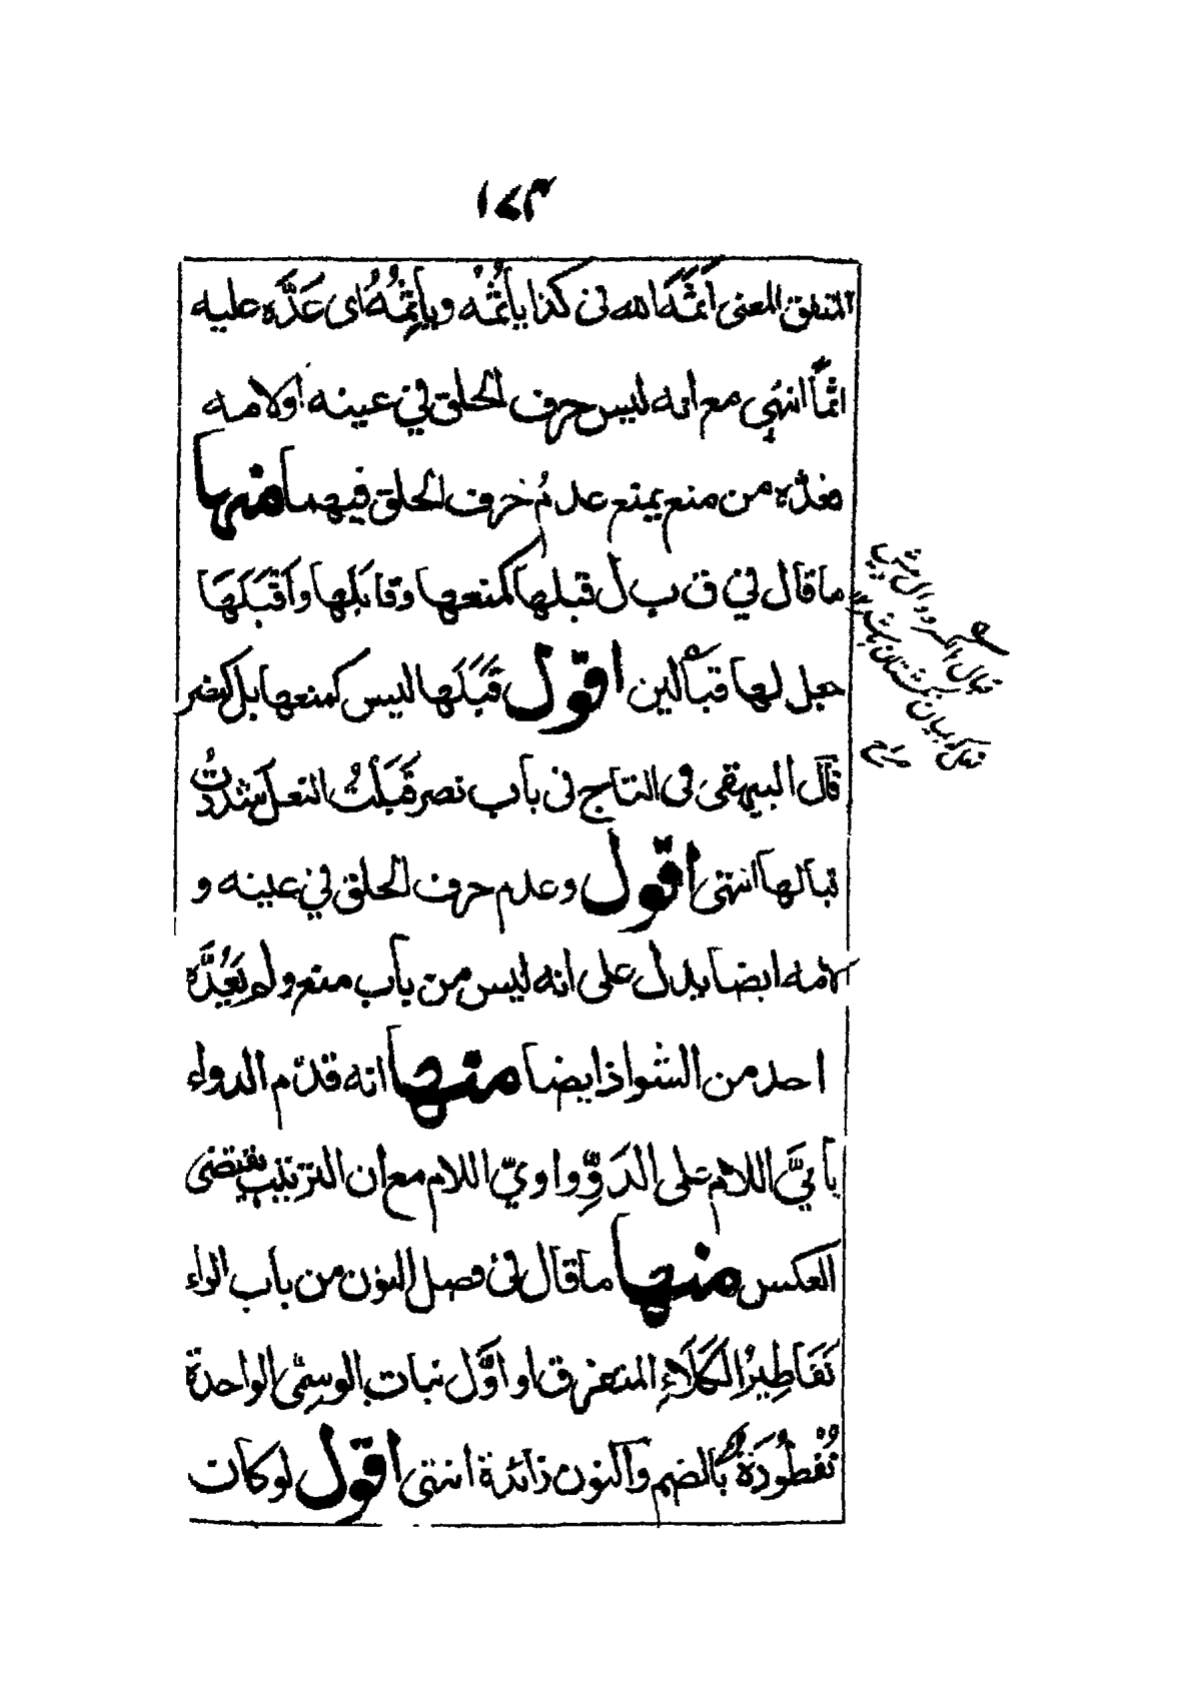 ١٧٣
المتفق المعنى أَثَمَهُ الله فى كذا يأثُمُه ويأثِمُهُ اى عَدَّه عليه
اثمًا انتهى مع انه ليس حرف الحلق فى عينه اولامه
فعدّه من منع يمنع عدمُ حرف الحلق فيهما منها
ما قال فى ق ب ل قبلها كمنعها وقابَلها واَقْبَلَهَا
جعل لها قبالين اقول قَبَلَها ليس كمنعها بل كنصر
قال البيهقى فى التاج فى باب نصر قَبَلْتُ النعل شددتُ
قبالها انتهى اقول وعدم حرف الحلق فى عينه و
لامه ايضا يدل على انه ليس من باب منع ولم يَعُدَّه
احد من الشواذ ايضا منها انه قدّم الدواء
يائىَّ اللام على الدَوِّ واوىّ اللام مع ان الترتيب يقتضى
العكس منها ما قال فى فصل النون من باب الراء
نَفَاطِيرُ الكَلَاءِ المتفرق او اوّل نبات الوسمىّ الواحدة
نُفْطُورَةٌ بالضم والنون زائدة انتهى اقول لو كانت
قبال
صراح